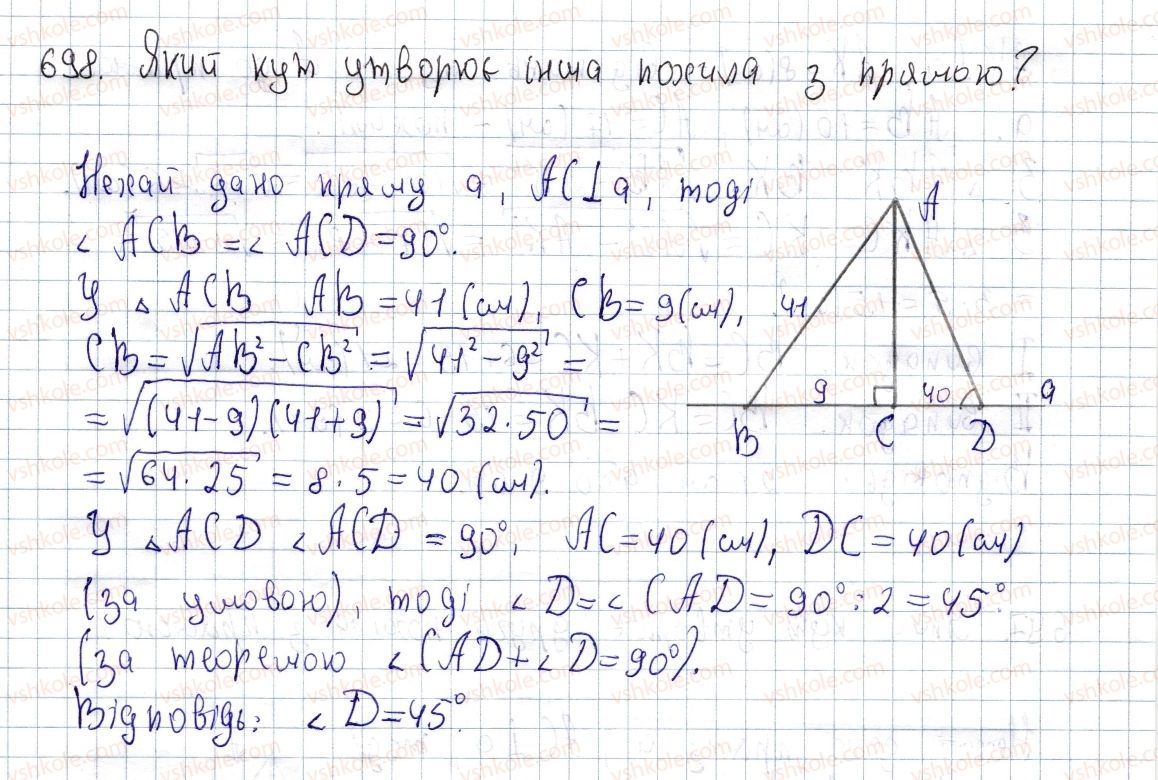 698. Який кут утворює інша похила з прямою?
Нехай дано пряму a, AC⊥a, тоді
∠ ACB = ∠ ACD = 90°.
У △ ACB AB = 41 (см), CB = 9 (см),
CB = √AB² − CB² = √41² − 9² =
= √(41−9)(41+9) = √32·50 =
= √64·25 = 8·5 = 40 (см).
У △ACD ∠ACD = 90°, AC = 40 (см), DC = 40 (см)
(за умовою), тоді ∠D = ∠CAD = 90°:2 = 45°
(за теоремою ∠CAD + ∠D = 90°).
Відповідь: ∠D = 45°.
A
41
9
40
a
B
C
D